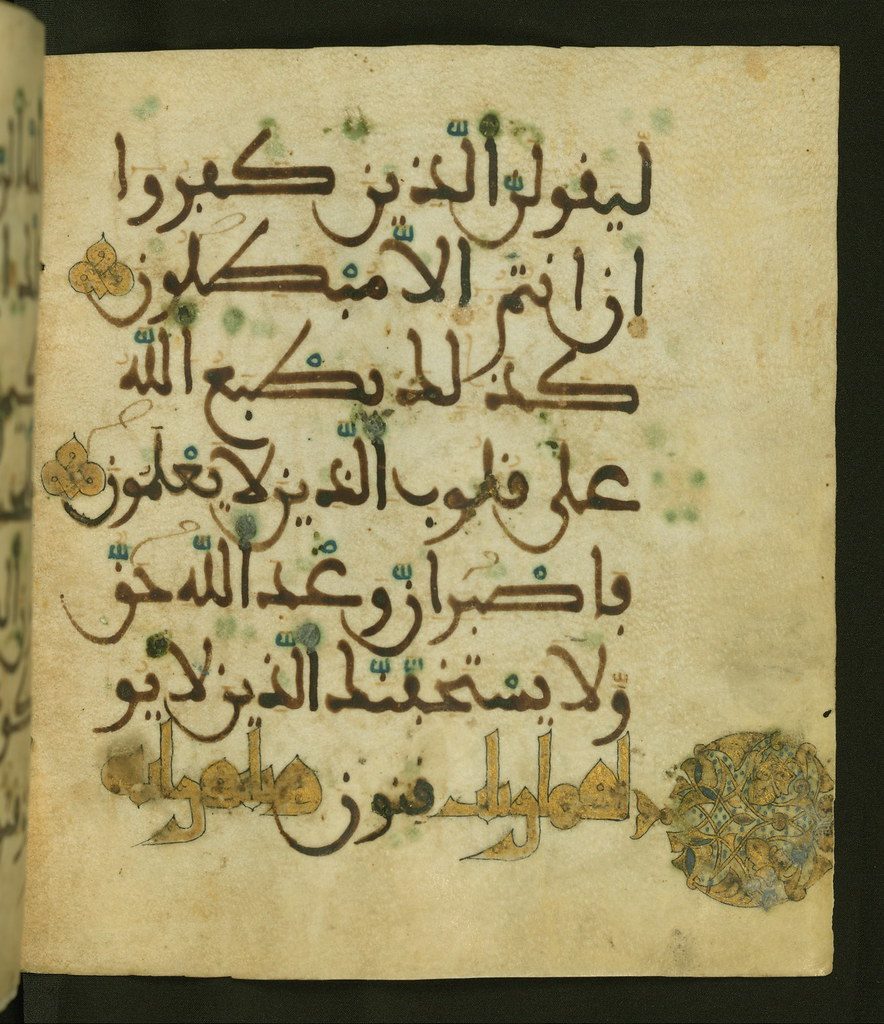 ليقولن الذين كفروا
ان انتم الا مبطلون
كذلك يطبع الله
على قلوب الذين لا يعلمون
فاصبر ان وعد الله حق
ولا يستخفنك الذين لا يو
لقمان قنون